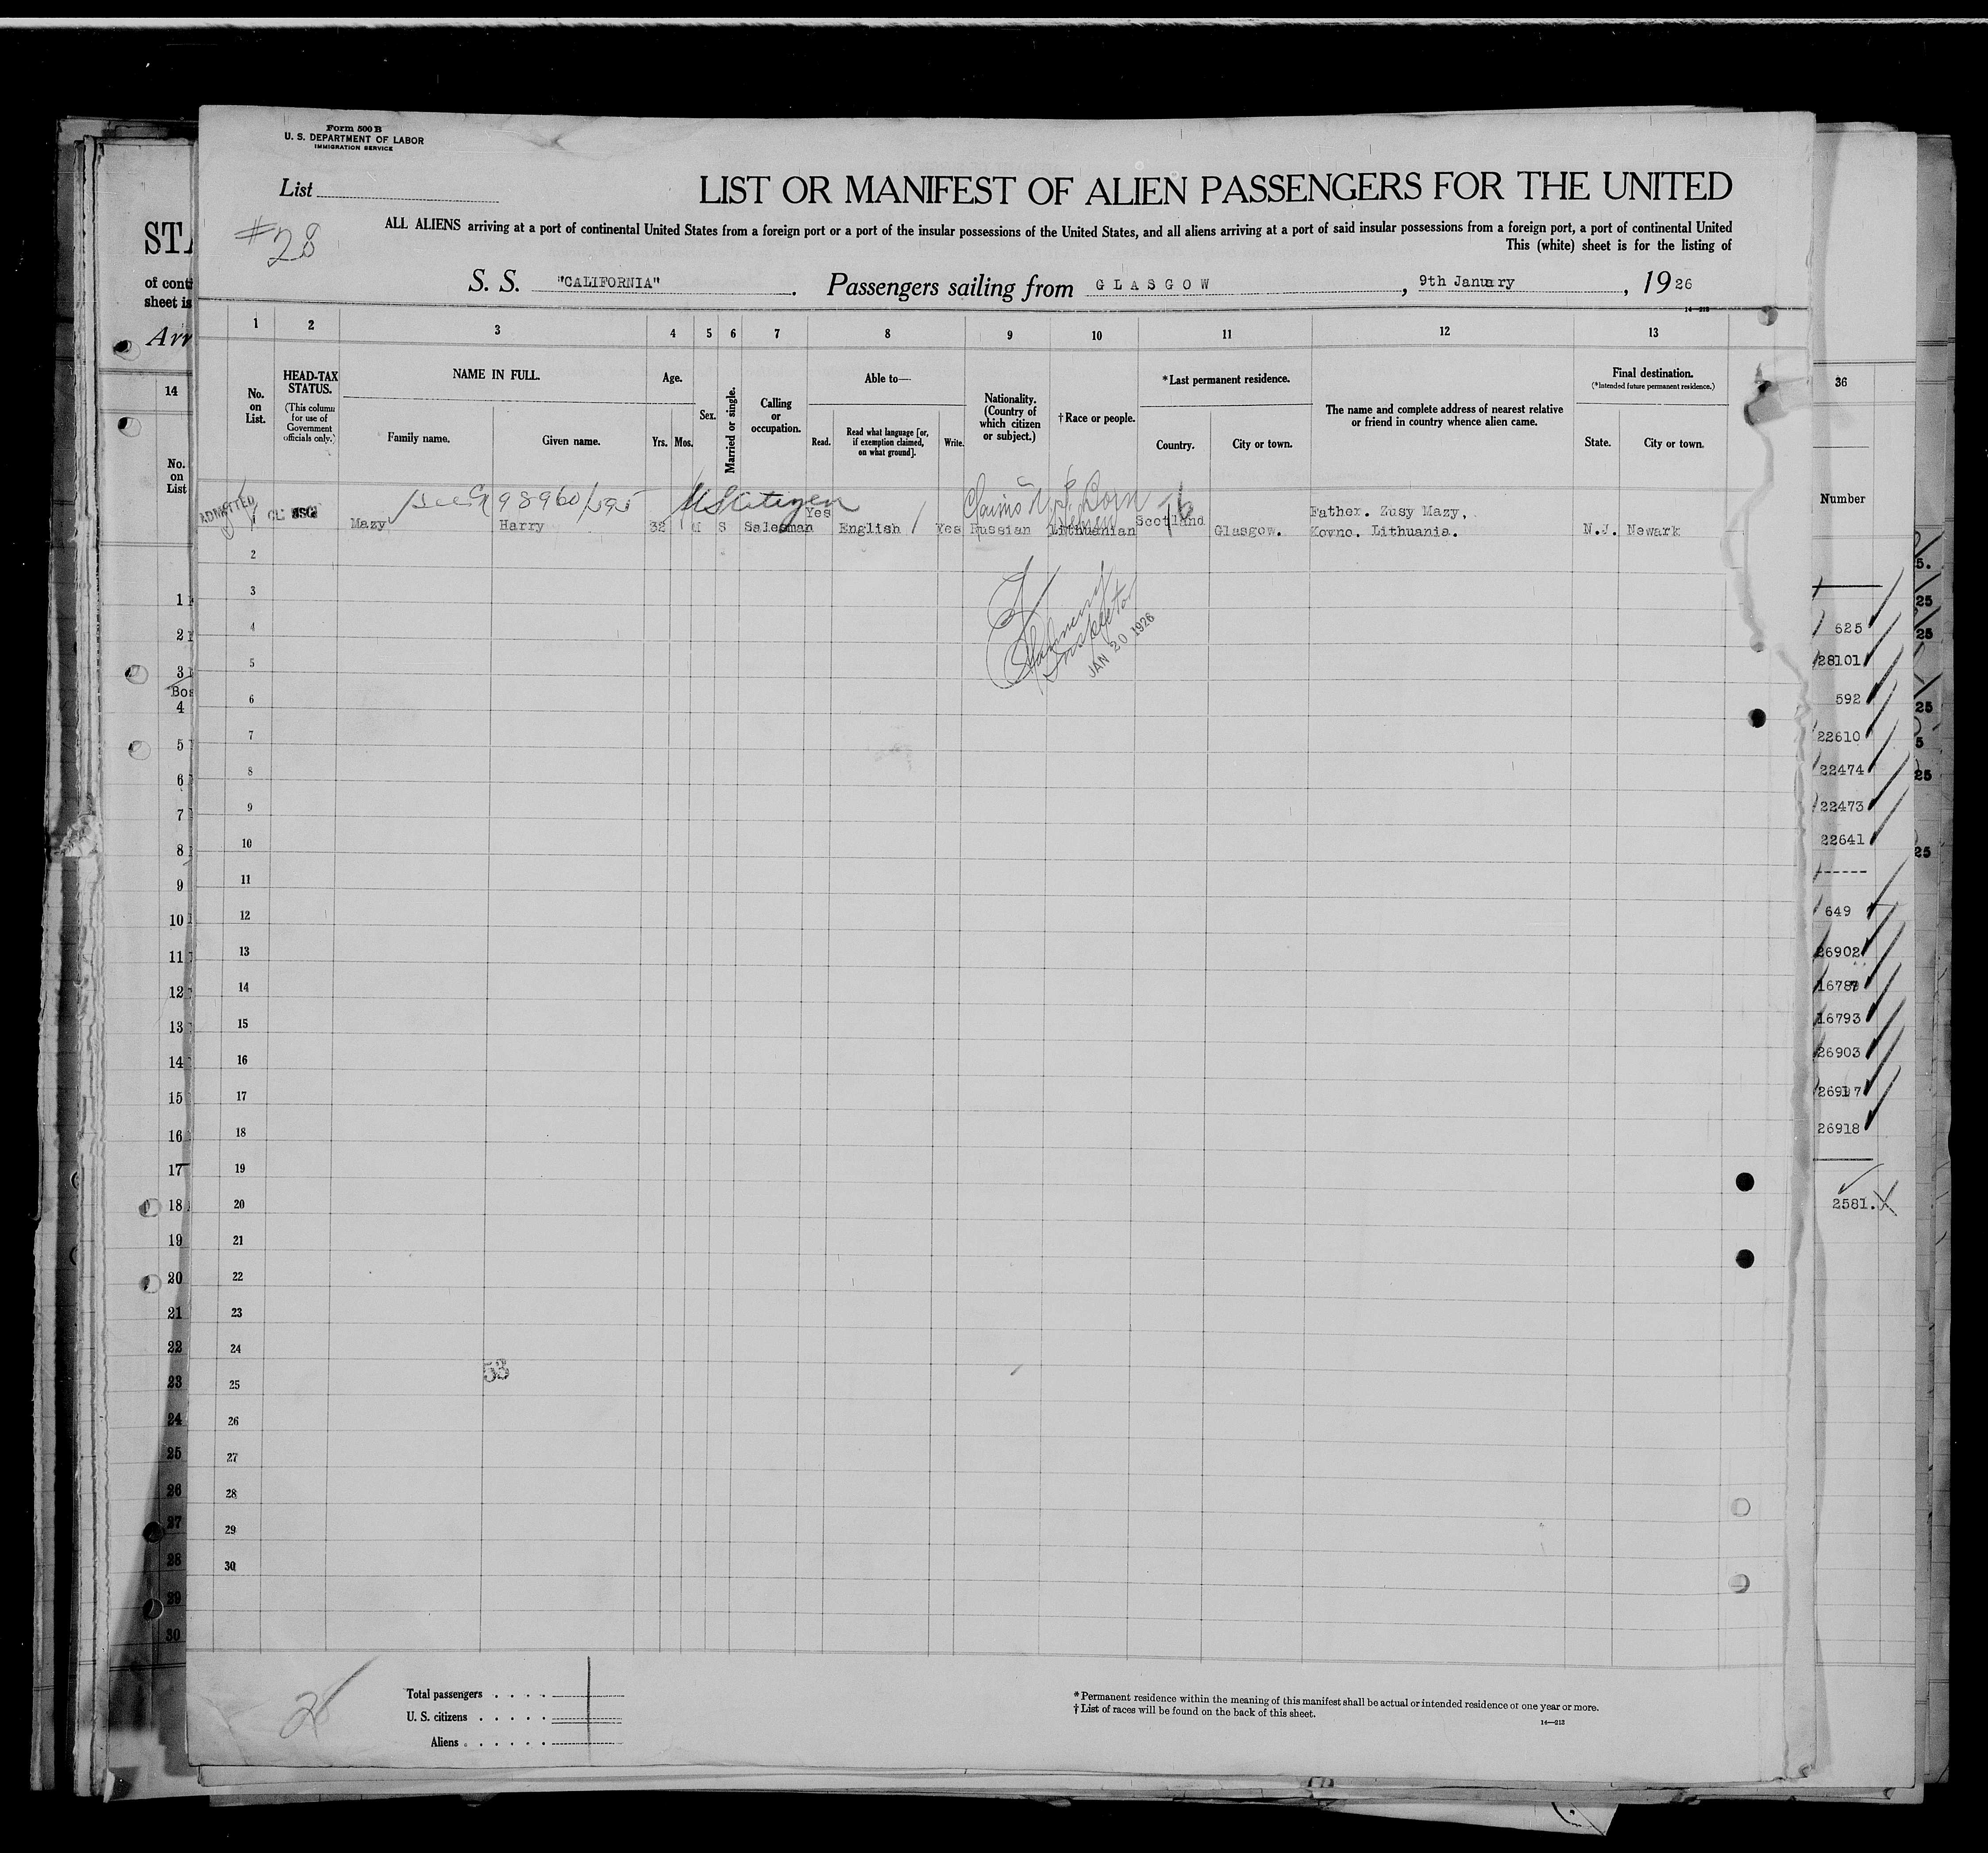 Form 500 B
U. S. DEPARTMENT OF LABOR
IMMIGRATION SERVICE
List
#28
LIST OR MANIFEST OF ALIEN PASSENGERS FOR THE UNITED
ALL ALIENS arriving at a port of continental United States from a foreign port or a port of the insular possessions of the United States, and all aliens arriving at a port of said insular possessions from a foreign port, a port of continental United
This (white) sheet is for the listing of
S. S. "CALIFORNIA". Passengers sailing from GLASGOW, 9th January, 1926
14—213
1 2 3 4 5 6 7 8 9 10 11 12 13
No. on List.
HEAD-TAX STATUS.
(This column for use of Government officials only.)
NAME IN FULL.
Family name.
Given name.
Age.
Yrs. Mos.
Sex.
Married or single.
Calling or occupation.
Able to—
Read.
Read what language [or, if exemption claimed, on what ground].
Write.
Nationality. (Country of which citizen or subject.)
†Race or people.
*Last permanent residence.
Country.
City or town.
The name and complete address of nearest relative or friend in country whence alien came.
Final destination.
(*Intended future permanent residence.)
State.
City or town.
98960/595 US Citizen Claims U.S. Born
ADMITTED
1 Mazy Harry 32 M S Salesman Yes English Yes Russian Lithuanian Scotland Glasgow. Father. Zusy Mazy, Kovno. Lithuania. N.J. Newark
2
3
4
5
6
7
8
9
10
11
12
13
14
15
16
17
18
19
20
21
22
23
24
25
26
27
28
29
30
Inspector
JAN 20 1926
53
2
Total passengers
U. S. citizens
Aliens
*Permanent residence within the meaning of this manifest shall be actual or intended residence of one year or more.
†List of races will be found on the back of this sheet.
14—213
STA
of cont
sheet is
Arr
14
No. on List
1
2
3
Bos
4
5
6
7
8
9
10
11
12
13
14
15
16
17
18
19
20
21
22
23
24
25
26
27
28
29
30
36
Number
625
28101
592
22610
22474
22473
22641
649
26902
16793
26903
26918
2581.
5.
25
25
25
5
25
25